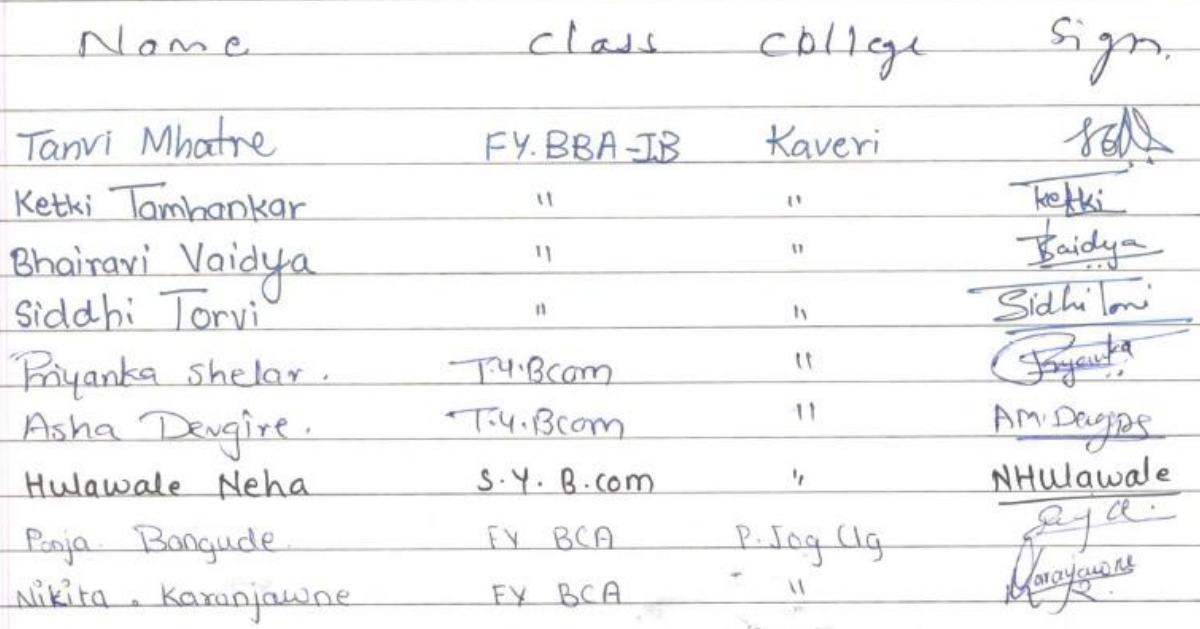 Name Class College Sign.
Tanvi Mhatre FY.BBA-IB Kaveri
Ketki Tamhankar " " Ketki
Bhairavi Vaidya " " Vaidya
Siddhi Torvi " " Sidhi Torvi
Priyanka Shelar. T.Y.Bcom " Priyanka
Asha Dengire. T.Y.Bcom "
Hulawale Neha S.Y.B.com " NHulawale
Pooja Bangude. FY BCA P.Jog Clg
Nikita. Karanjawne FY BCA "